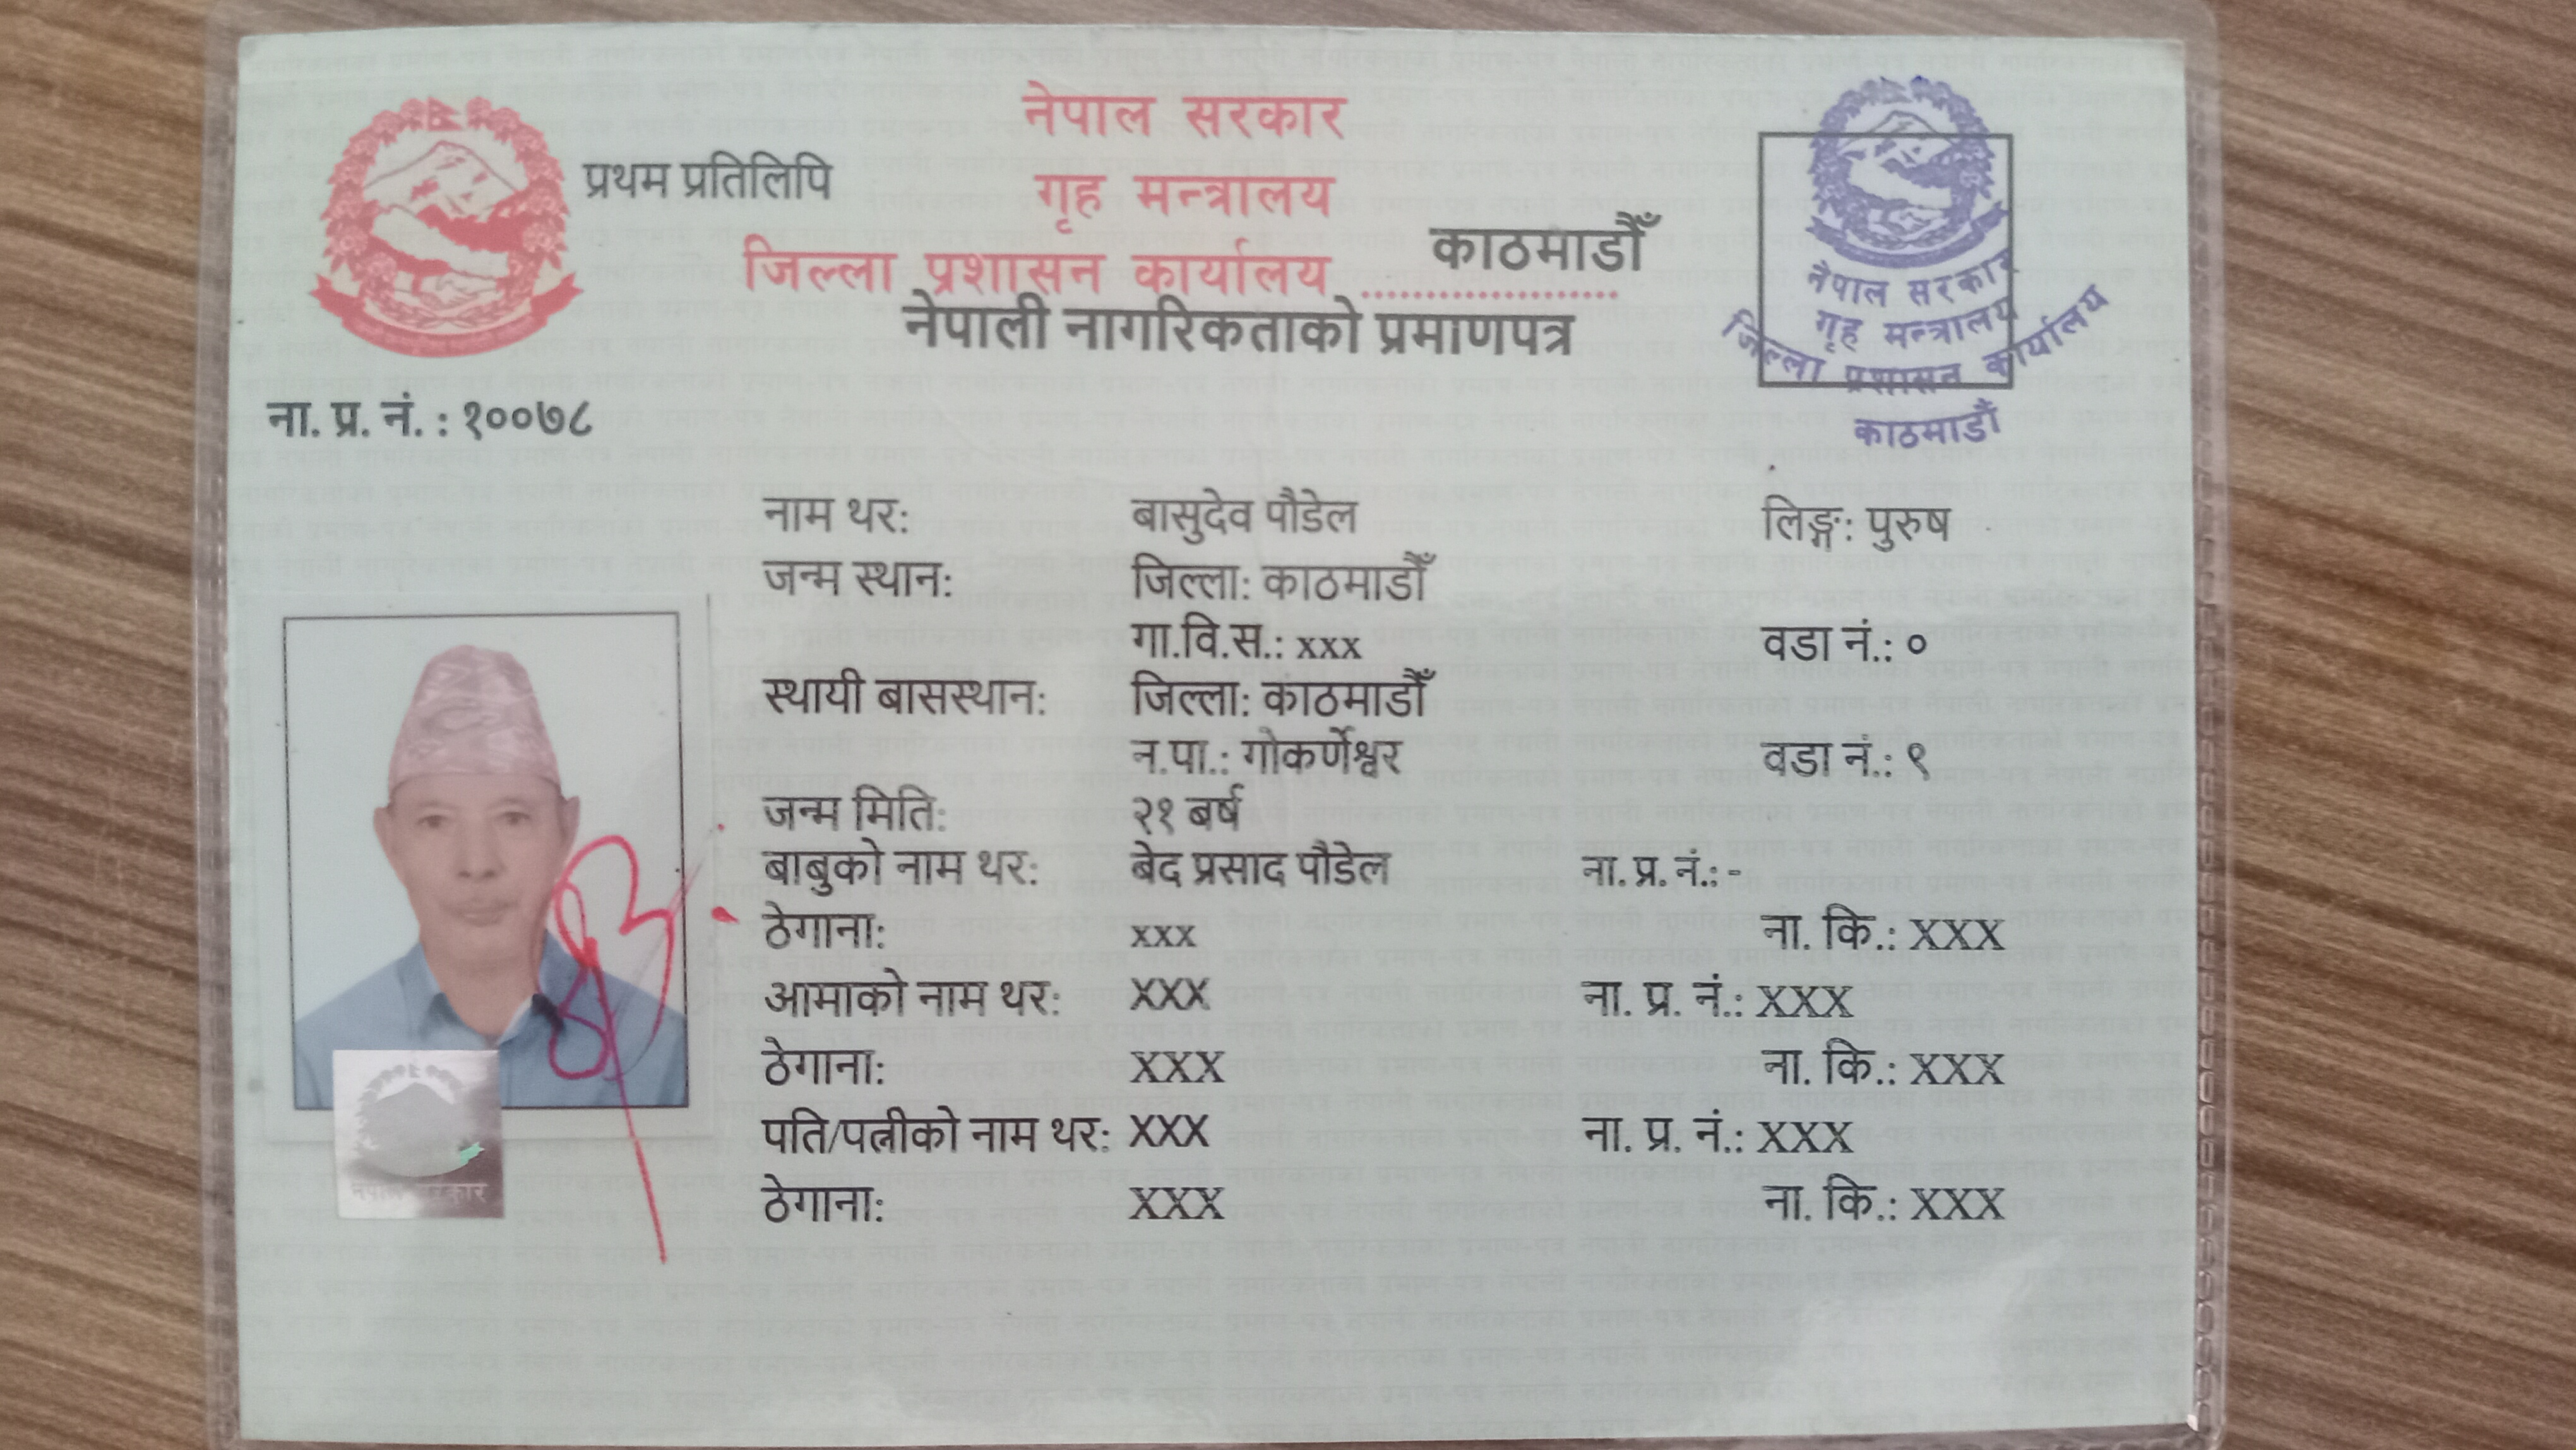 नेपाल सरकार
प्रथम प्रतिलिपि
गृह मन्त्रालय
जिल्ला प्रशासन कार्यालय काठमाडौँ
नेपाली नागरिकताको प्रमाणपत्र
नेपाल सरकार
गृह मन्त्रालय
जिल्ला प्रशासन कार्यालय
काठमाडौँ
ना. प्र. नं. : १००७८
नाम थर: बासुदेव पौडेल लिङ्ग: पुरुष
जन्म स्थान: जिल्ला: काठमाडौँ
गा.वि.स.: xxx वडा नं.: ०
स्थायी बासस्थान: जिल्ला: काठमाडौँ
न.पा.: गोकर्णेश्वर वडा नं.: ९
जन्म मिति: २१ बर्ष
बाबुको नाम थर: बेद प्रसाद पौडेल ना. प्र. नं.: -
ठेगाना: xxx ना. कि.: XXX
आमाको नाम थर: XXX ना. प्र. नं.: XXX
ठेगाना: XXX ना. कि.: XXX
पति/पत्नीको नाम थर: XXX ना. प्र. नं.: XXX
ठेगाना: XXX ना. कि.: XXX
नेपाल सरकार